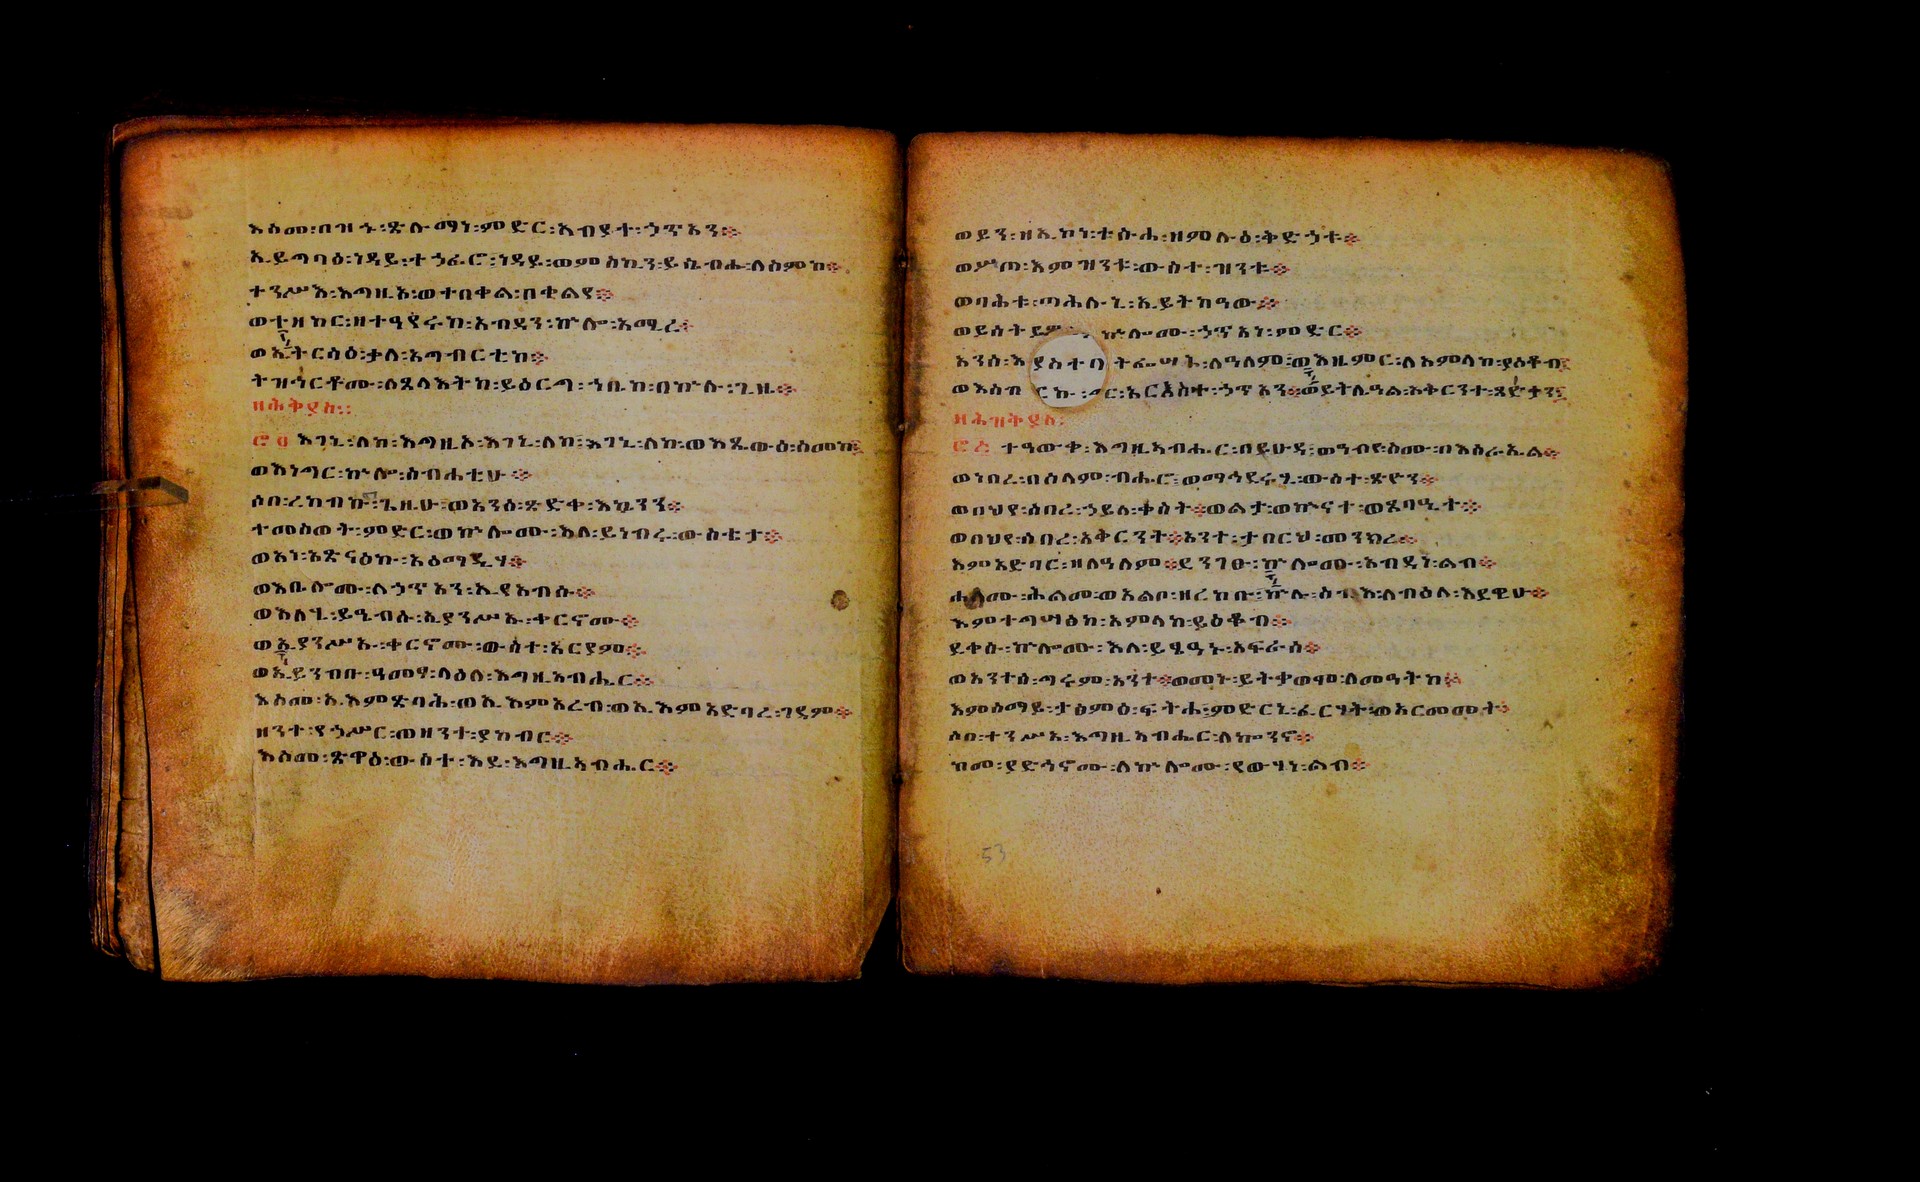 እስመ፡በዝኁ፡ጽሉማነ፡ምድር፡አብያተ፡ኃጥአን።
ኢይግባዕ፡ነዳይ፡ተኃፊሮ፡ነዳይ፡ወምስኪን፡ይሴብሑ፡ለስምከ።
ተንሥእ፡እግዚኦ፡ወተበቀል፡በቀልየ።
ወተዘከር፡ዘተዓየሩከ፡አብዳን፡ኵሎ፡አሚረ።
ወኢትርሳዕ፡ቃለ፡አግብርቲከ።
ትዝኅርቶሙ፡ለጸላእትከ፡ይዕርግ፡ኀቤከ፡በኵሉ፡ጊዜ።
ዘሕቅያስ።
፸፬ እገኒ፡ለከ፡እግዚኦ፡እገኒ፡ለከ፡እገኒ፡ለከ፡ወእጼውዕ፡ስመከ።
ወእነግር፡ኵሎ፡ስብሐቲሁ።
ሶበ፡ረከብኩ፡ጊዜሁ፡ወአንሰ፡ጽድቀ፡እኴንን።
ተመስወት፡ምድር፡ወኵሎሙ፡እለ፡ይነብሩ፡ውስቴታ።
ወአነ፡አጽናዕኩ፡አዕማዲሃ።
ወእቤሎሙ፡ለኃጥአን፡ኢየአብሱ።
ወእለኒ፡ይኤብሱ፡ኢያንሥኡ፡ቀርኖሙ።
ወኢያንሥኡ፡ቀርኖሙ፡ውስተ፡አርያም።
ወኢይንብቡ፡ዓመፃ፡ላዕለ፡እግዚአብሔር።
እስመ፡ኢእምጽባሕ፡ወኢእምአረብ፡ወኢእምአድባረ፡ገዳም።
ዘንተ፡የኀሥር፡ወዘንተ፡ያከብር።
እስመ፡ጽዋዕ፡ውስተ፡እደ፡እግዚአብሔር።
ወይን፡ዘኢኮነ፡ቱሱሐ፡ዘምሉዕ፡ቅድኃተ።
ወሦጠ፡እምዝንቱ፡ውስተ፡ዝንቱ።
ወባሕቱ፡ጣሕሉኒ፡ኢይትከዓው።
ወይሰትይዎ ኵሎሙ፡ኃጥአነ፡ምድር።
አንሰ፡እ ትፌሣሕ፡ለዓለም፡ወእዜምር፡ለአምላከ፡ያዕቆብ።
ወእሰብ አርእስተ፡ኃጥአን።ወይትሌዓል፡አቅርንተ፡ጻድቃን።
ዘሕዝቅያስ፡
፸፭ ተዓውቀ፡እግዚአብሔር፡በይሁዳ፡ወዓብየ፡ስሙ፡በእስራኤል።
ወነበረ፡በሰላም፡ብሔሮ፡ወማኅደሩሂ፡ውስተ፡ጽዮን።
ወበህየ፡ሰበረ፡ኃይለ፡ቀስት።ወልታ፡ወኵናተ፡ወጸባዒተ።
ወበህየ፡ሰበረ፡አቅርንት።አንተ፡ታበርህ፡መንክረ።
እምአድባር፡ዘለዓለም።ደንገፁ፡ኵሎሙ፡አብዳነ፡ልብ።
ሐለሙ፡ሕልመ፡ወአልቦ፡ዘረከቡ፡ኵሉ፡ሰብእ፡ለብዕለ፡እደዊሁ።
እምተግሣፅከ፡አምላከ፡ያዕቆብ።
ደቀሱ፡ኵሎሙ፡እለ፡ይፄዓኑ፡አፍራሰ።
ወአንተሰ፡ግሩም፡አንተ።ወመኑ፡ይትቃወሞ፡ለመዓትከ።
እምሰማይ፡ታፀምዕ፡ፍትሐ፡ምድርኒ፡ፈርሃት፡ወአርመመት።
ሶበ፡ተንሥአ፡እግዚአብሔር፡ለኰንኖ።
ከመ፡ያድኅኖሙ፡ለኵሎሙ፡የውሃነ፡ልብ።
53